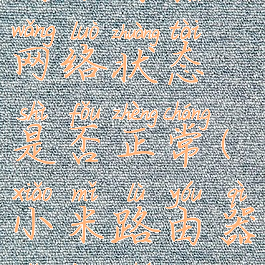 wǎng luò zhuàng tài
网络状态
shì fǒu zhèng cháng
是否正常(
xiǎo mǐ lù yóu qì
小米路由器